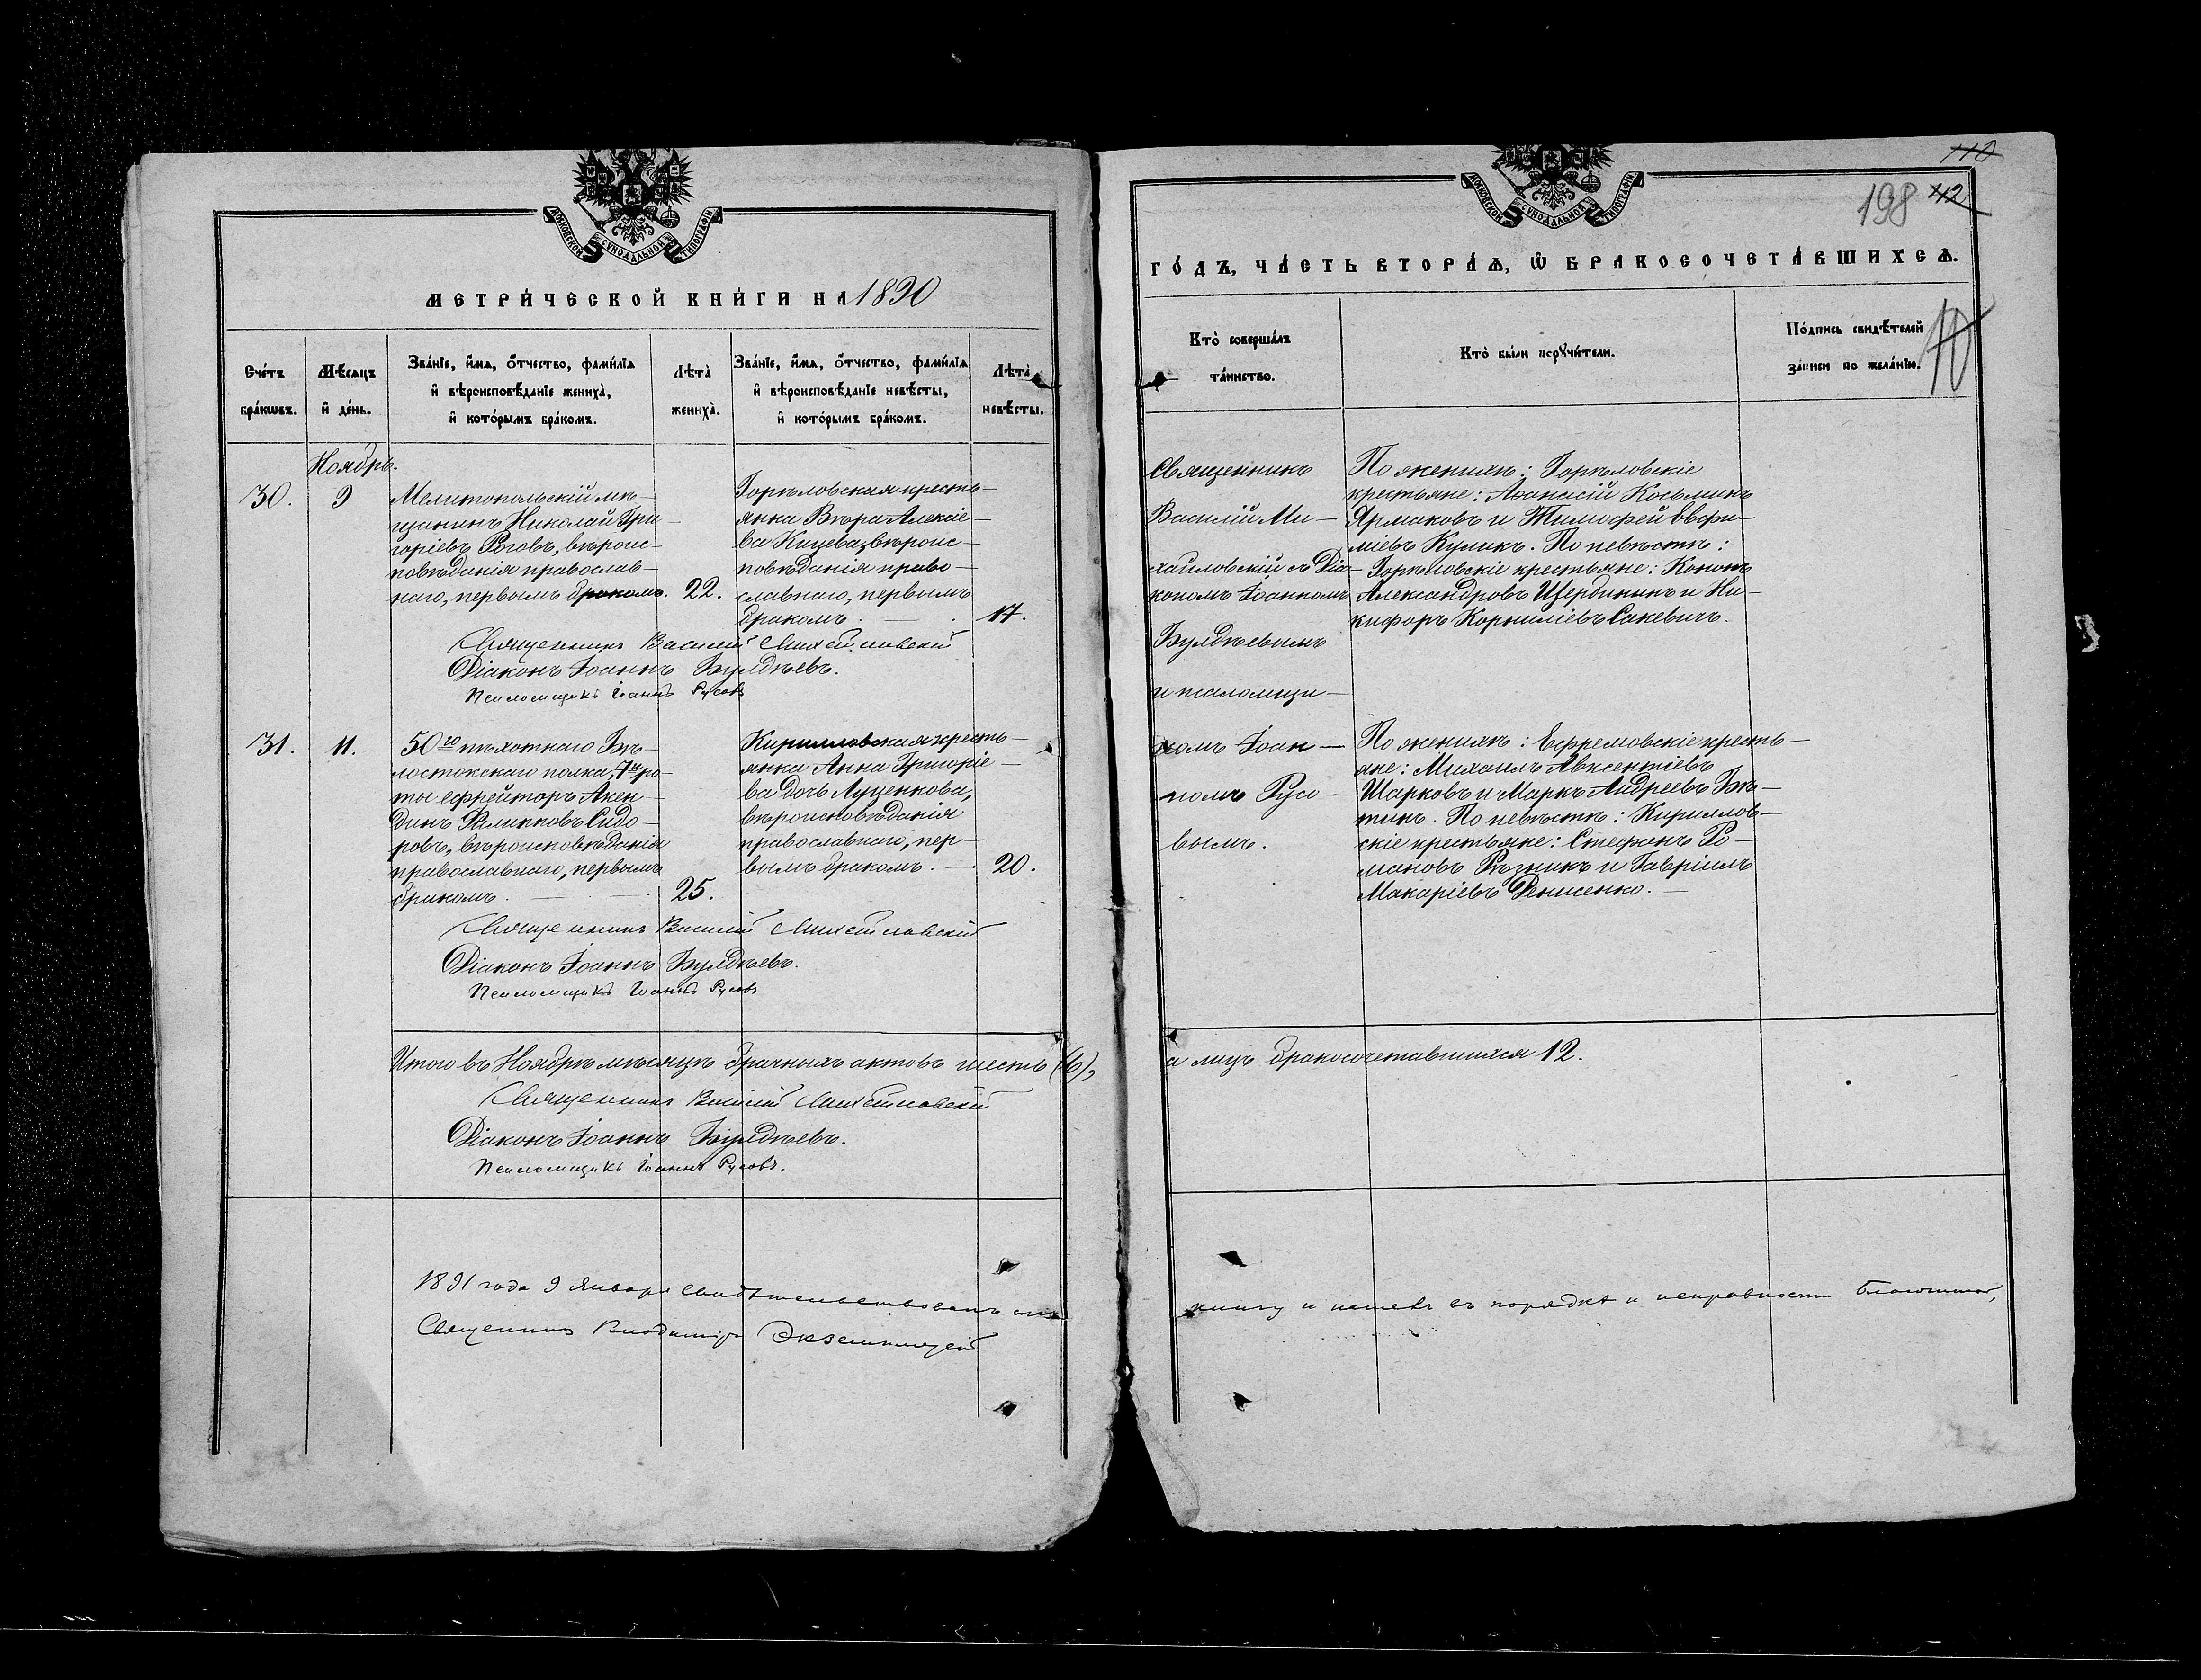 МОСКОВСКОЙ СѴНОДАЛЬНОЙ ТИПОГРАФІИ
МЕТРИ́ЧЕСКОЙ КНИ́ГИ НА 1890
Сче́тъ бра́кѡвъ.
Мѣ́сяцъ и҆ де́нь.
Зва́нїе, и҆́мѧ, ѻ҆́тчество, фами́лїѧ и҆ вѣроисповѣ́данїе жениха̀, и҆ кото́рымъ бра́комъ.
Лѣта̀ жениха̀.
Зва́нїе, и҆́мѧ, ѻ҆́тчество, фами́лїѧ и҆ вѣроисповѣ́данїе невѣ́сты, и҆ кото́рымъ бра́комъ.
Лѣта̀ невѣ́сты.
Ноябрь.
30.
9
Мелитопольскій мѣ-
щанинъ Николай Гри-
горіевъ Роговъ, вѣроис-
повѣданія православ-
наго, первымъ бракомъ. 22.
Горѣловская кресть-
янка Вѣра Алексіе-
ва Куцева, вѣроис-
повѣданія право-
славнаго, первымъ
бракомъ. 17.
Священникъ Василій Михайловскій
Діаконъ Іоаннъ Булдѣевъ.
Псаломщикъ Іоаннъ Русовъ
31.
11.
50го пѣхотнаго Бѣ-
лостокскаго полка, 7й ро-
ты ефрейторъ Акен-
динъ Филипповъ Сидо-
ровъ, вѣроисповѣданія
православнаго, первымъ
бракомъ. 25.
Кирилловская кресть-
янка Анна Григоріе-
ва дочь Луценкова,
вѣроисповѣданія
православнаго, пер-
вымъ бракомъ. 20.
Священникъ Василій Михайловскій
Діаконъ Іоаннъ Булдѣевъ.
Псаломщикъ Іоаннъ Русовъ
Итого въ Ноябрѣ мѣсяцѣ брачныхъ актовъ шесть (6),
Священникъ Василій Михайловскій
Діаконъ Іоаннъ Булдѣевъ.
Псаломщикъ Іоаннъ Русовъ.
1891 года 9 Января свидѣтельствовалъ сію
Священникъ Владиміръ Экземплярскій
110
198 112
МОСКОВСКОЙ СѴНОДАЛЬНОЙ ТИПОГРАФІИ
ГО́ДЪ, ЧА́СТЬ ВТОРА́Ѧ, Ѡ҆ БРАКОСОЧЕТА́ВШИХСѦ.
Кто̀ соверша́лъ та́инство.
Кто̀ бы́ли порꙋчи́тели.
По́дпись свидѣ́телей за́писи по жела́нїю.
Священникъ
Василій Ми-
хайловскій съ Діа-
кономъ Іоанномъ
Булдѣевымъ
и псаломщи-
комъ Іоан-
номъ Русо-
вымъ.
По женихѣ: Горѣловскіе
крестьяне: Аѳанасій Косьминъ
Ярмаковъ и Тимофей Евфи-
міевъ Куликъ. По невѣстѣ:
Горѣловскіе крестьяне: Кононъ
Александровъ Щербининъ и Ни-
кифоръ Корниліевъ Сакевичъ.
По женихѣ: Ефремовскіе кресть-
яне: Михаилъ Авксентіевъ
Шарковъ и Маркъ Андреевъ Бѣ-
тинъ. По невѣстѣ: Кириллов-
скіе крестьяне: Стефанъ Ро-
мановъ Рѣзникъ и Гавріилъ
Макаріевъ Денисенко.
а лицъ бракосочетавшихся 12.
книгу и нашелъ въ порядкѣ и исправности